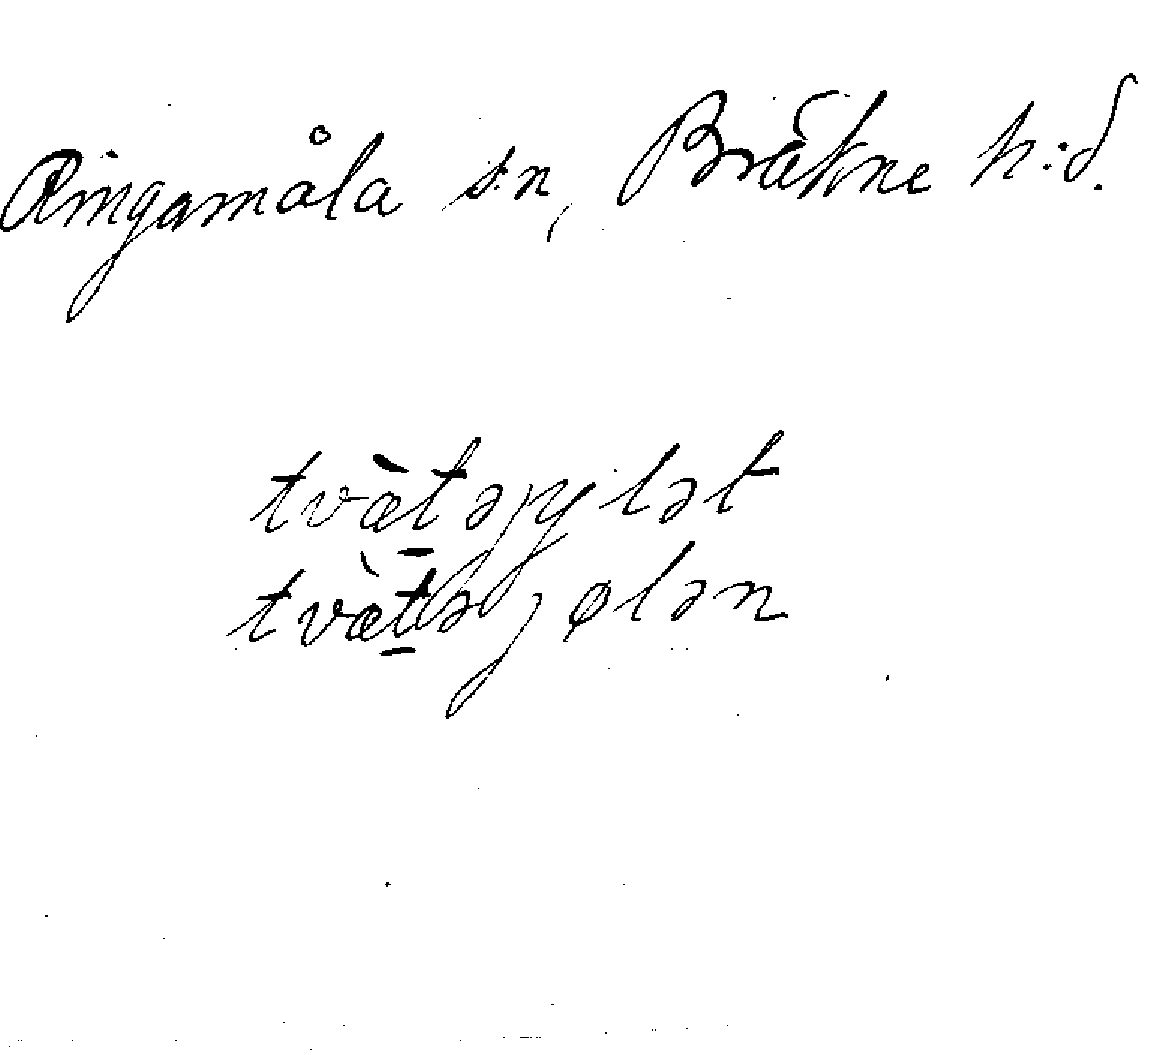 Ringamåla s:n, Bräkne h:d.
tvæ̀t̲əɟyɫət
tvæ̀t̲əɟøɫən